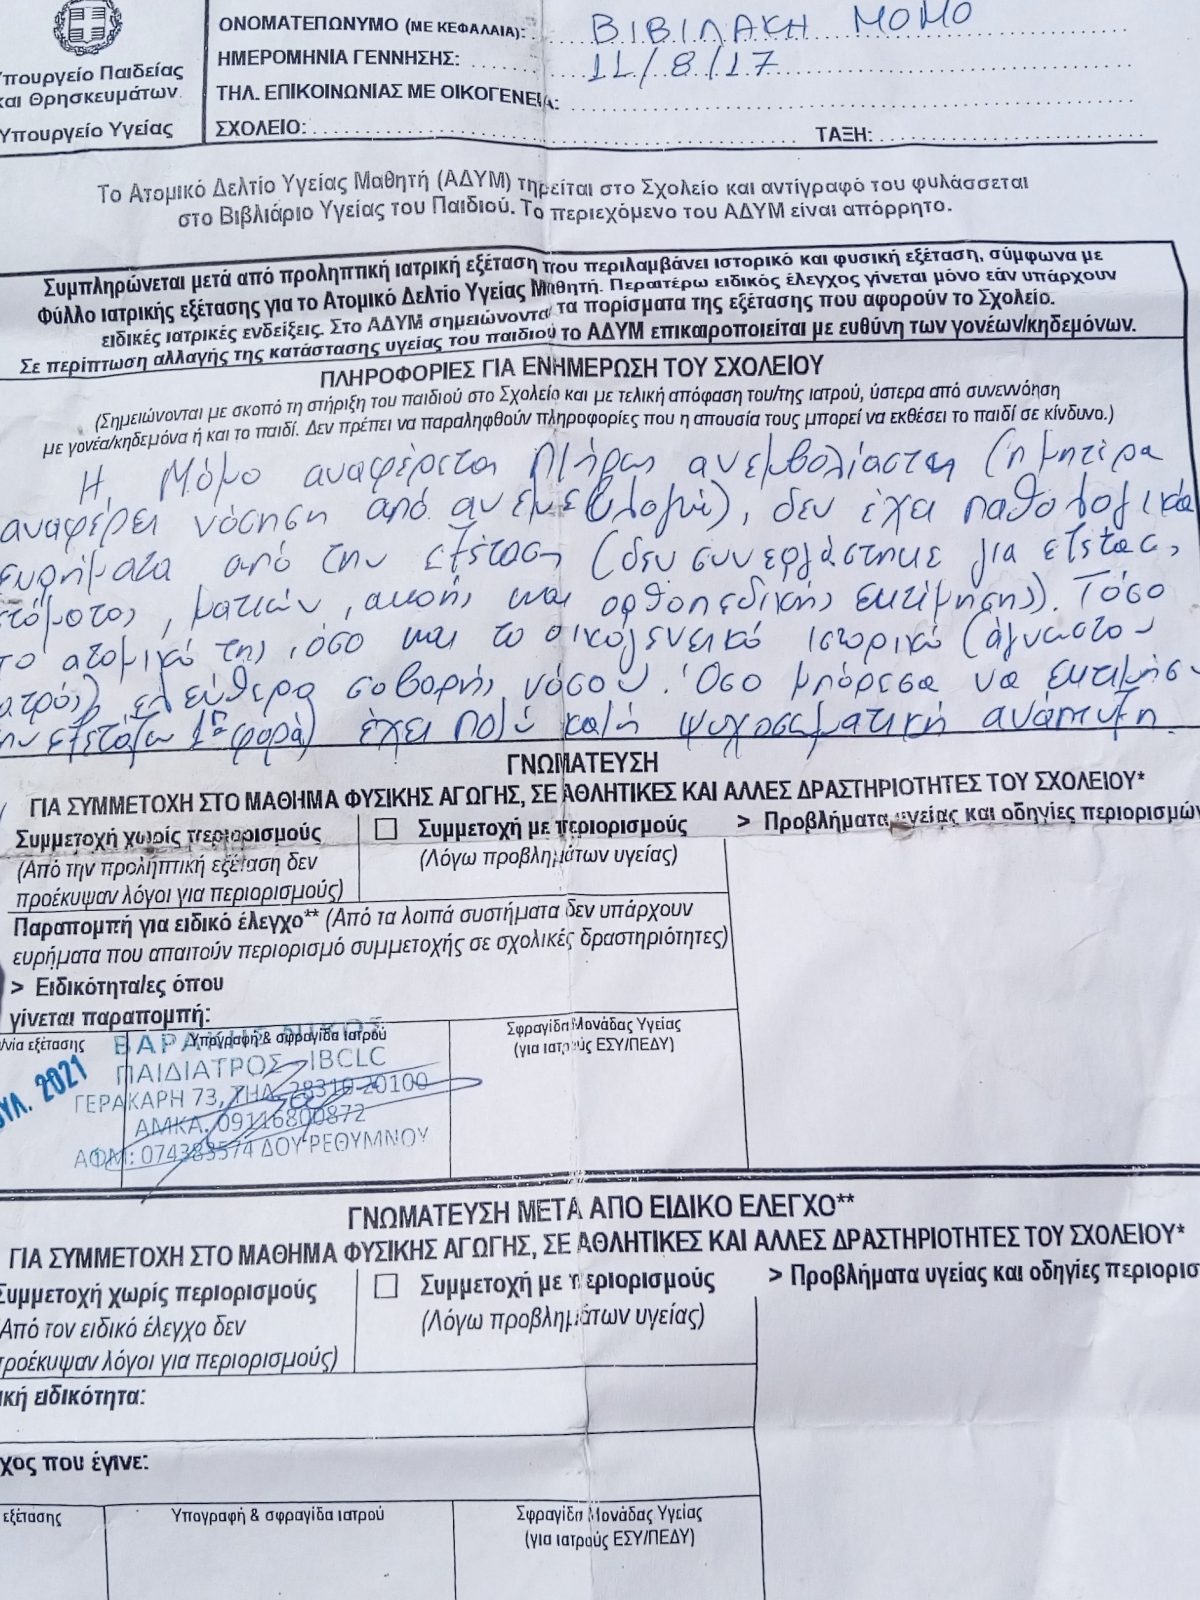 ΟΝΟΜΑΤΕΠΩΝΥΜΟ (ΜΕ ΚΕΦΑΛΑΙΑ): ΒΙΒΙΛΑΚΗ ΜΟΜΟ
ΗΜΕΡΟΜΗΝΙΑ ΓΕΝΝΗΣΗΣ: 11/8/17
ΤΗΛ. ΕΠΙΚΟΙΝΩΝΙΑΣ ΜΕ ΟΙΚΟΓΕΝΕΙΑ:
ΣΧΟΛΕΙΟ: ΤΑΞΗ:
Υπουργείο Παιδείας
και Θρησκευμάτων.
Υπουργείο Υγείας
Το Ατομικό Δελτίο Υγείας Μαθητή (ΑΔΥΜ) τηρείται στο Σχολείο και αντίγραφό του φυλάσσεται
στο Βιβλιάριο Υγείας του Παιδιού. Το περιεχόμενο του ΑΔΥΜ είναι απόρρητο.
Συμπληρώνεται μετά από προληπτική ιατρική εξέταση που περιλαμβάνει ιστορικό και φυσική εξέταση, σύμφωνα με
Φύλλο ιατρικής εξέτασης για το Ατομικό Δελτίο Υγείας Μαθητή. Περαιτέρω ειδικός έλεγχος γίνεται μόνο εάν υπάρχουν
ειδικές ιατρικές ενδείξεις. Στο ΑΔΥΜ σημειώνονται τα πορίσματα της εξέτασης που αφορούν το Σχολείο.
Σε περίπτωση αλλαγής της κατάστασης υγείας του παιδιού το ΑΔΥΜ επικαιροποιείται με ευθύνη των γονέων/κηδεμόνων.
ΠΛΗΡΟΦΟΡΙΕΣ ΓΙΑ ΕΝΗΜΕΡΩΣΗ ΤΟΥ ΣΧΟΛΕΙΟΥ
(Σημειώνονται με σκοπό τη στήριξη του παιδιού στο Σχολείο και με τελική απόφαση του/της ιατρού, ύστερα από συνεννόηση
με γονέα/κηδεμόνα ή και το παιδί. Δεν πρέπει να παραληφθούν πληροφορίες που η απουσία τους μπορεί να εκθέσει το παιδί σε κίνδυνο.)
Η Μόμο αναφέρεται πλήρως ανεμβολίαστη (η μητέρα
αναφέρει νόσηση από ανεμευλογιά), δεν έχει παθολογικά
ευρήματα από την εξέταση (δεν συνεργάστηκε για εξέτας,
στόματος, ματιών, ακοής και ορθοπεδικής εκτίμησης). Τόσο
το ατομικό της, όσο και το οικογενειακό ιστορικό (άγνωστου
πατρός), ελεύθερα σοβαρής νόσου. Όσο μπόρεσα να εκτιμήσω
(την εξετάζω 1η φορά) έχει πολύ καλή ψυχοσωματική ανάπτυξη
ΓΝΩΜΑΤΕΥΣΗ
ΓΙΑ ΣΥΜΜΕΤΟΧΗ ΣΤΟ ΜΑΘΗΜΑ ΦΥΣΙΚΗΣ ΑΓΩΓΗΣ, ΣΕ ΑΘΛΗΤΙΚΕΣ ΚΑΙ ΑΛΛΕΣ ΔΡΑΣΤΗΡΙΟΤΗΤΕΣ ΤΟΥ ΣΧΟΛΕΙΟΥ*
Συμμετοχή χωρίς περιορισμούς
(Από την προληπτική εξέταση δεν
προέκυψαν λόγοι για περιορισμούς)
Συμμετοχή με περιορισμούς
(Λόγω προβλημάτων υγείας)
> Προβλήματα υγείας και οδηγίες περιορισμών
Παραπομπή για ειδικό έλεγχο** (Από τα λοιπά συστήματα δεν υπάρχουν
ευρήματα που απαιτούν περιορισμό συμμετοχής σε σχολικές δραστηριότητες)
> Ειδικότητα/ες όπου
γίνεται παραπομπή:
/νία εξέτασης
ΟΥΛ. 2021
Υπογραφή & σφραγίδα ιατρού
ΒΑΡΑΚΗΣ ΝΙΚΟΣ
ΠΑΙΔΙΑΤΡΟΣ - IBCLC
ΓΕΡΑΚΑΡΗ 73, ΤΗΛ. 28310-20100
ΑΜΚΑ. 09116800872
ΑΦΜ: 074383574 ΔΟΥ ΡΕΘΥΜΝΟΥ
Σφραγίδα Μονάδας Υγείας
(για ιατρούς ΕΣΥ/ΠΕΔΥ)
ΓΝΩΜΑΤΕΥΣΗ ΜΕΤΑ ΑΠΟ ΕΙΔΙΚΟ ΕΛΕΓΧΟ**
ΓΙΑ ΣΥΜΜΕΤΟΧΗ ΣΤΟ ΜΑΘΗΜΑ ΦΥΣΙΚΗΣ ΑΓΩΓΗΣ, ΣΕ ΑΘΛΗΤΙΚΕΣ ΚΑΙ ΑΛΛΕΣ ΔΡΑΣΤΗΡΙΟΤΗΤΕΣ ΤΟΥ ΣΧΟΛΕΙΟΥ*
Συμμετοχή χωρίς περιορισμούς
(Από τον ειδικό έλεγχο δεν
προέκυψαν λόγοι για περιορισμούς)
Συμμετοχή με περιορισμούς
(Λόγω προβλημάτων υγείας)
> Προβλήματα υγείας και οδηγίες περιορισ
ική ειδικότητα:
χος που έγινε:
εξέτασης
Υπογραφή & σφραγίδα ιατρού
Σφραγίδα Μονάδας Υγείας
(για ιατρούς ΕΣΥ/ΠΕΔΥ)